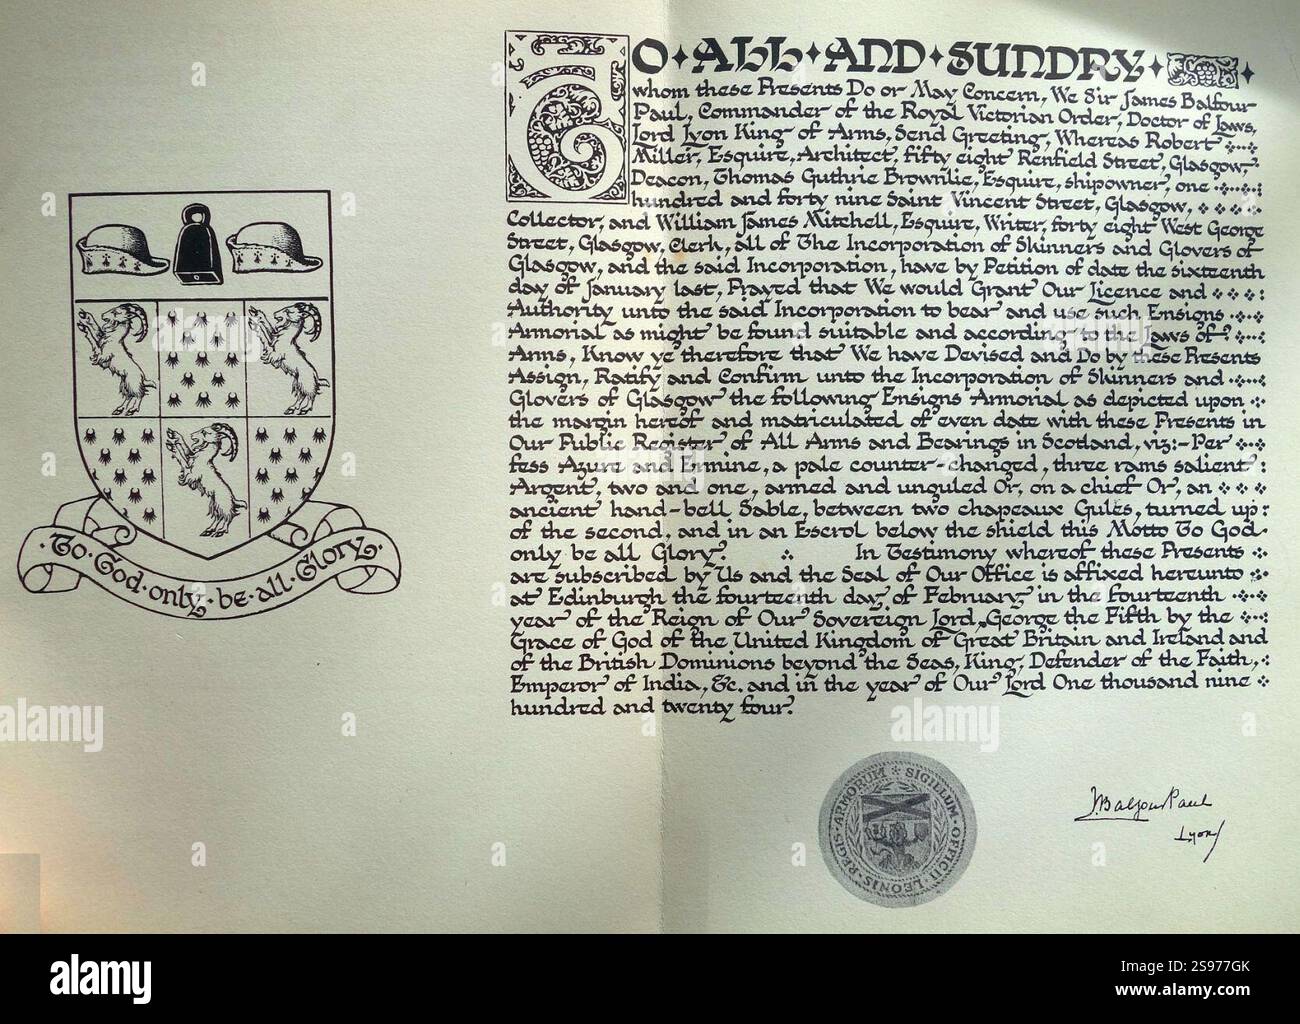 TO ALL AND SUNDRY
whom these Presents Do or May Concern, We Sir James Balfour
Paul, Commander of the Royal Victorian Order, Doctor of Laws,
Lord Lyon King of Arms, Send Greeting, Whereas Robert
Miller, Esquire, Architect, fifty eight Renfield Street, Glasgow,
Deacon, Thomas Guthrie Brownlie, Esquire, shipowner, one
hundred and forty nine Saint Vincent Street, Glasgow,
Collector, and William James Mitchell, Esquire, Writer, forty eight West George
Street, Glasgow, Clerk, all of The Incorporation of Skinners and Glovers of
Glasgow, and the said Incorporation, have by Petition of date the sixteenth
day of January last, Prayed that We would Grant Our Licence and
Authority unto the said Incorporation to bear and use such Ensigns
Armorial as might be found suitable and according to the Laws of
Arms, Know ye therefore that We have Devised and Do by these Presents
Assign, Ratify and Confirm unto the Incorporation of Skinners and
Glovers of Glasgow the following Ensigns Armorial as depicted upon
the margin hereof and matriculated of even date with these Presents in
Our Public Register of All Arms and Bearings in Scotland, viz:- Per
fess Azure and Ermine, a pale counter-changed, three rams salient
Argent, two and one, armed and unguled Or, on a chief Or, an
ancient hand-bell Sable, between two chapeaux Gules, turned up
of the second, and in an Escrol below the shield this Motto To God
only be all Glory. In Testimony whereof these Presents
are subscribed by Us and the Seal of Our Office is affixed hereunto
at Edinburgh the fourteenth day of February in the fourteenth
year of the Reign of Our Sovereign Lord George the Fifth by the
Grace of God of the United Kingdom of Great Britain and Ireland and
of the British Dominions beyond the Seas, King, Defender of the Faith,
Emperor of India, &c. and in the year of Our Lord One thousand nine
hundred and twenty four.
·To·God·only·be·all·Glory·
SIGILLUM·OFFICII·LEONIS·REGIS·ARMORUM
J Balfour Paul
Lyon
alamy
Image ID: 2S977GK
www.alamy.com